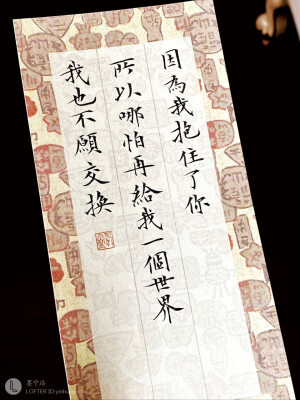 因為我抱住了你
所以哪怕再給我一個世界
我也不願交換